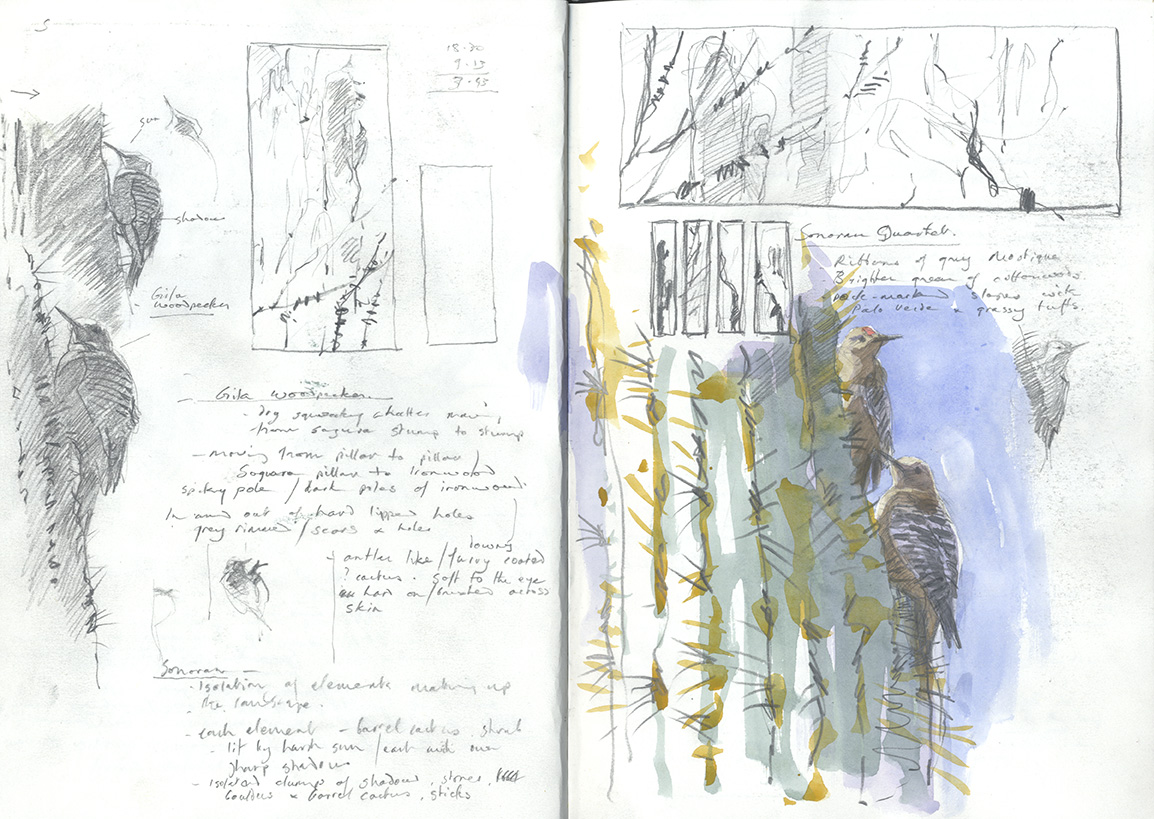 sun
18.30
9.15
shadow
Gila
woodpecker
Gila woodpecker
- dog squeaky chatter moving
from saguara stump to stump
- moving from pillar to pillar /
Saguara pillar to Ironwood
spikey pole / dark poles of ironwood
In and out of hard lipped holes
grey rimmed / scars & holes
antler like / furry coated
? cactus. soft to the eye
hard on / brushed across
skin
Sonoran -
- Isolation of elements making up
the landscape.
- each element - barrel cactus, shrub
- lit by harsh sun / each with own
sharp shadow
- isolated clumps of shadow, stones,
boulders & barrel cactus, sticks
Sonoran Quartet.
Ribbons of grey Mestique
Brighter green of cottonwoods
slopes with
Palo Verde & grassy tufts.